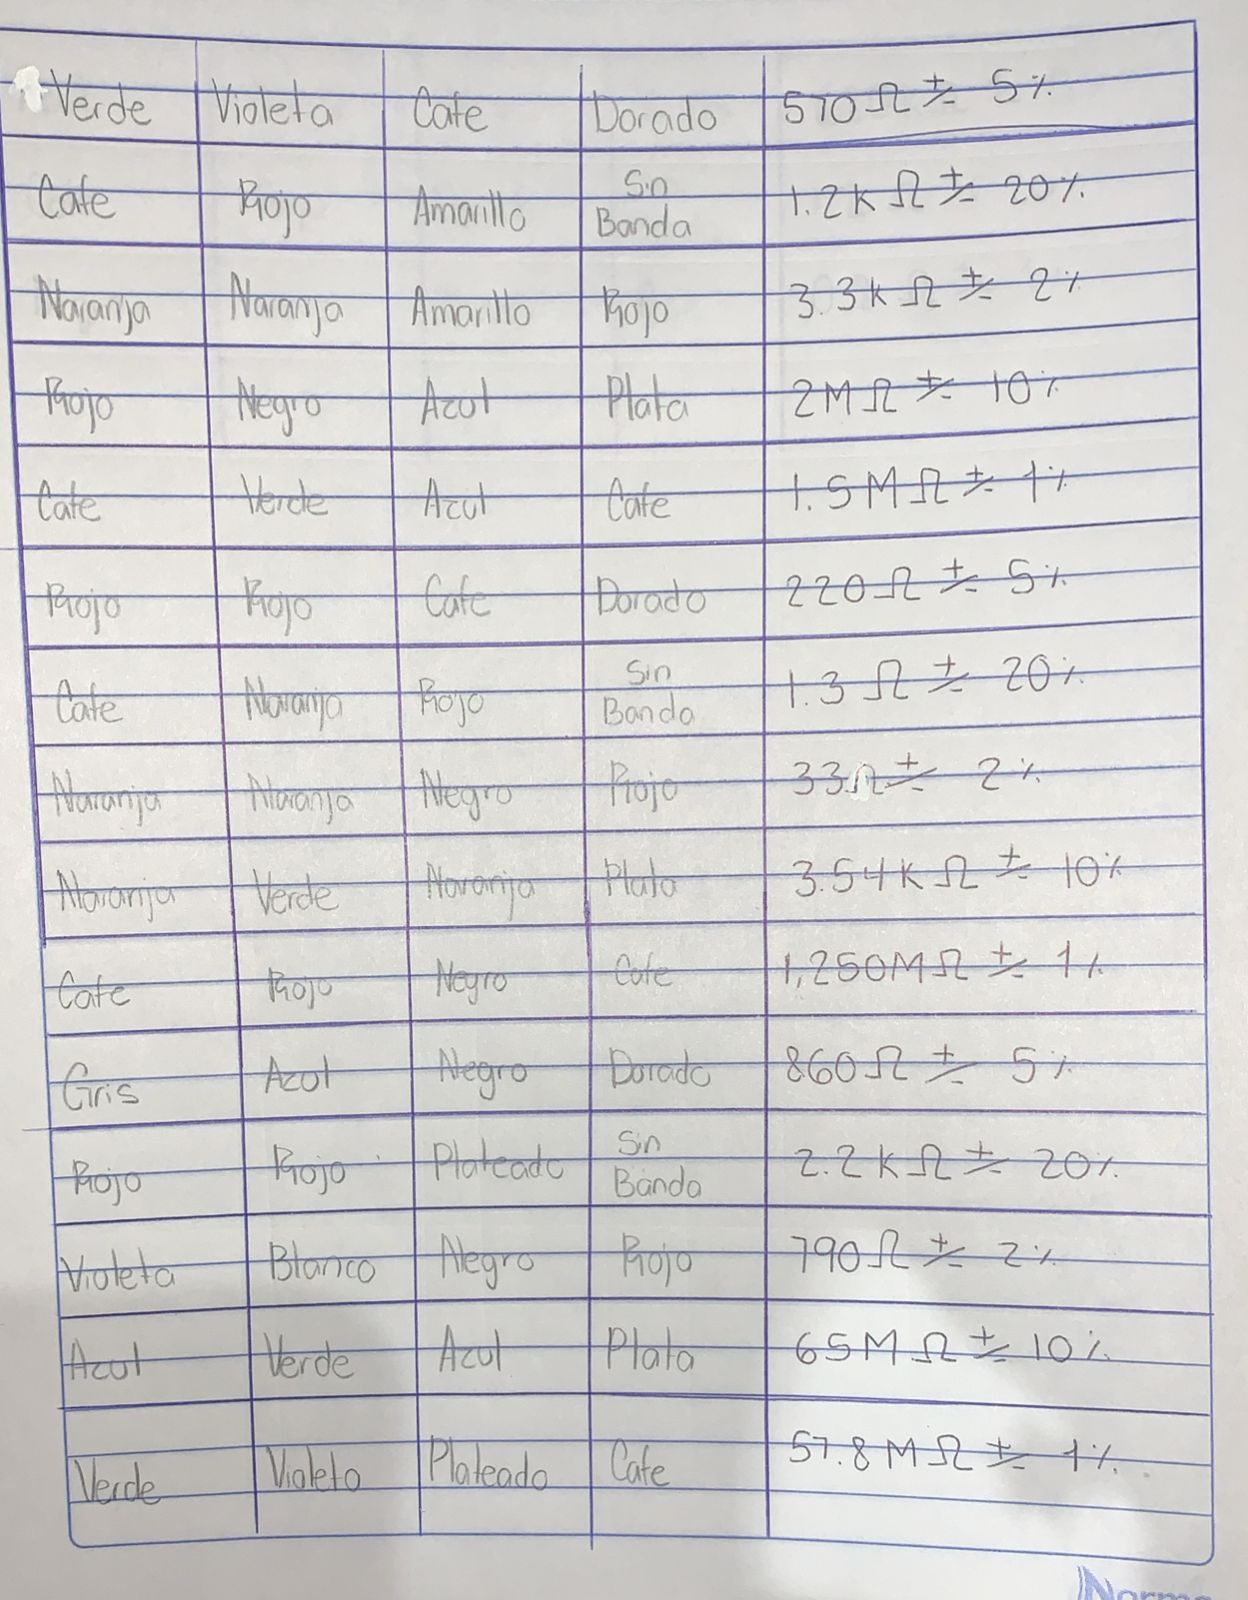 Verde Violeta Cafe Dorado 570 Ω ± 5%
Cafe Rojo Amarillo Sin Banda 1.2K Ω ± 20%
Naranja Naranja Amarillo Rojo 3.3K Ω ± 2%
Rojo Negro Azul Plata 2M Ω ± 10%
Cafe Verde Azul Cafe 1.5M Ω ± 1%
Rojo Rojo Cafe Dorado 220 Ω ± 5%
Cafe Naranja Rojo Sin Banda 1.3 Ω ± 20%
Naranja Naranja Negro Rojo 33 Ω ± 2%
Naranja Verde Naranja Plata 3.54K Ω ± 10%
Cafe Rojo Negro Cafe 1,250M Ω ± 1%
Gris Azul Negro Dorado 860 Ω ± 5%
Rojo Rojo Plateado Sin Banda 2.2K Ω ± 20%
Violeta Blanco Negro Rojo 790 Ω ± 2%
Azul Verde Azul Plata 65M Ω ± 10%
Verde Violeta Plateado Cafe 57.8M Ω ± 1%